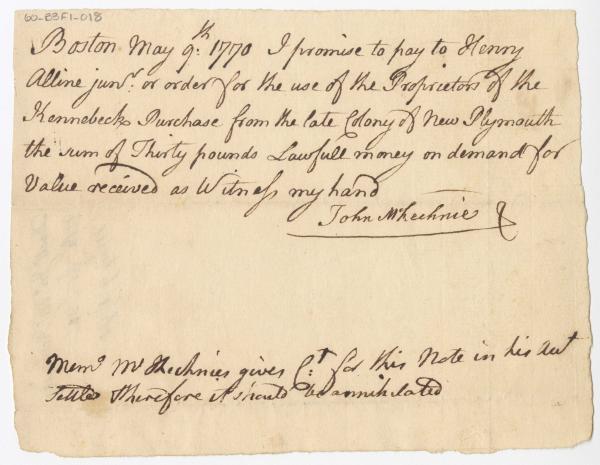 60-23F1-018
Boston May 9th: 1770 I promise to pay to Henry
Alline junr: or order for the use of the Proprietors of the
Kennebeck Purchase from the late Colony of New Plymouth
the sum of Thirty pounds Lawfull money on demand for
Value received as Witness my hand
John McKechnie
Memo Mr Kechnies gives Ct: for this Note in his Act
Settled therefore it should be annihilated